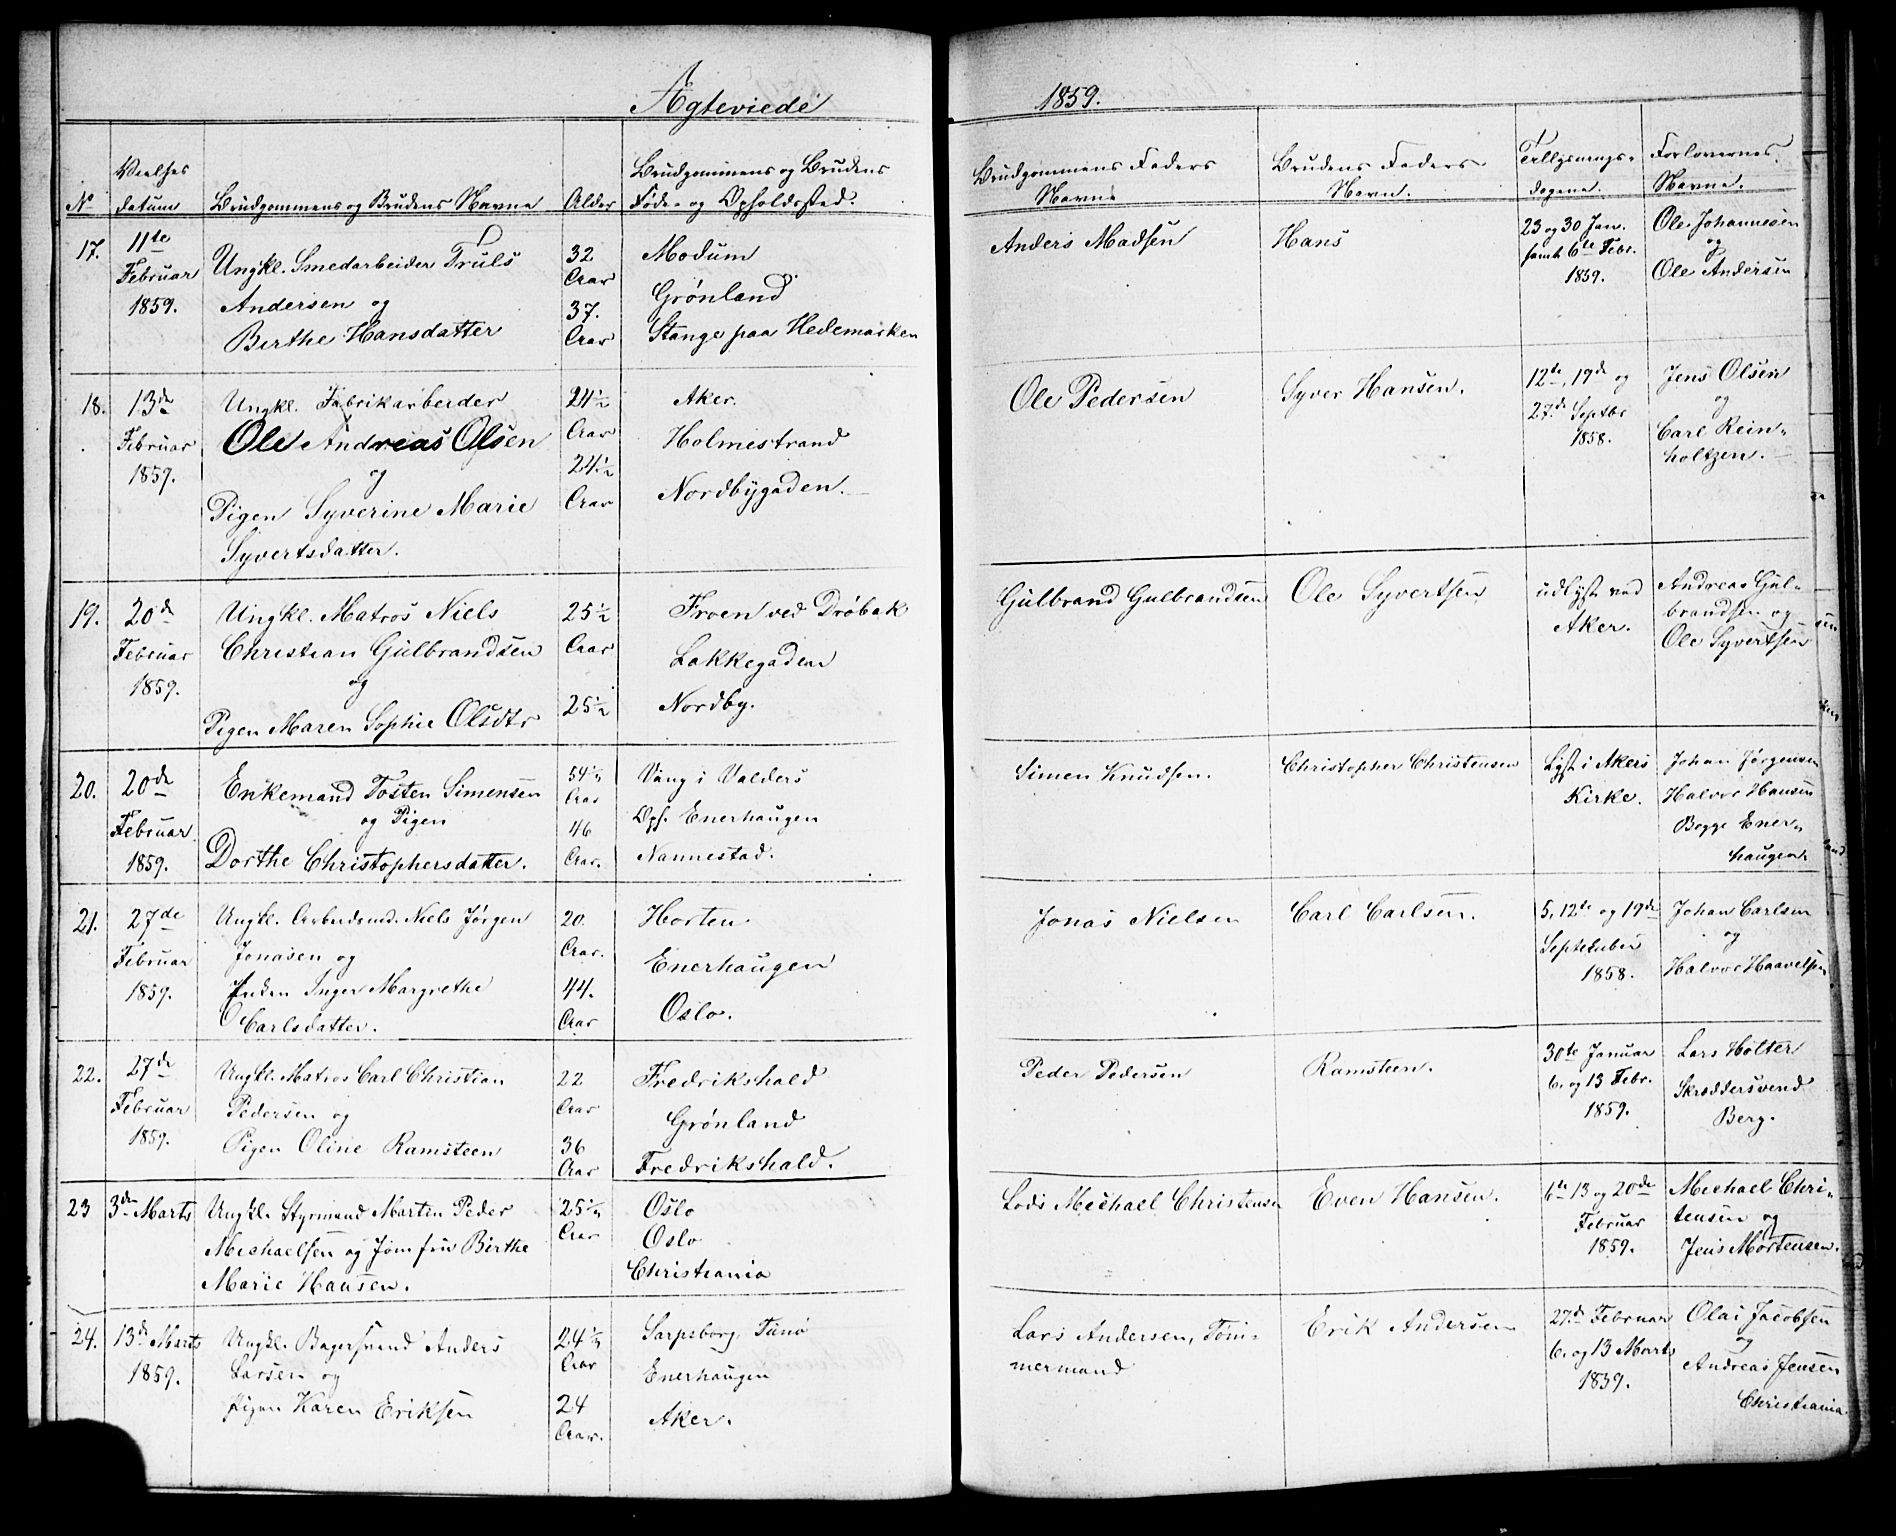 Ægteviede
1859.
No
Vielses datum
Brudgommens og Brudens Navne
Alder
Brudgommens og Brudens Føde- og Opholdssted.
Brudgommens Faders Navne
Brudens Faders Navn.
Tillysnings-dagene.
Forlovernes Navne.
17.
11te
Februar
1859.
Ungkl. Smedarbeider Truls
Andersen og
Birthe Hansdatter
32
Aar
37.
Aar
Modum
Grønland
Stange paa Hedemarken
Anders Madsen
Hans
23 og 30 Jan.
samt 6te Febr.
1859.
Ole Johannesen
og
Ole Andersen
18.
13de
Februar
1859.
Ungkl. Fabrikarbeider
Ole Andreas Olsen
og
Pigen Syverine Marie
Syvertsdatter.
24½
Aar
24½
Aar
Aker.
Holmestrand
Nordbygaden.
Ole Pedersen
Syver Hansen.
12te, 19de og
27de Septbr
1858.
Jens Olsen
og
Carl Rein-
holtzen.
19.
20de
Februar
1859.
Ungkl. Matros Niels
Christian Gulbrandsen
og
Pigen Maren Sophie Olsdtr
25½
Aar
25½
Froen ved Drøbak
Lakkegaden
Nordby.
Gulbrand Gulbrandsen
Ole Syvertsen
udlyst ved
Aker.
Andreas Gul-
brandsen og
Ole Syvertsen
20.
20de
Februar
1859.
Enkemand Tosten Simensen
og Pigen
Dorthe Christophersdatter.
54½
Aar
46
Aar.
Vang i Valders
Oph. Enerhaugen
Nannestad.
Simen Knudsen.
Christopher Christensen
Lyst i Akers
Kirke.
Johan Jørgensen
Halvor Hansen
Begge Ener-
haugen.
21.
27de
Februar
1859.
Ungkl. Arbeidsmd. Niels Jørgen
Jonasen og
Enken Inger Margrethe
Carlsdatter.
20.
Aar.
44.
Aar
Horten
Enerhaugen
Oslo.
Jonas Nielsen
Carl Carlsen.
5, 12te og 19de
September
1858.
Johan Carlsen
og
Halvor Haavelsen
22.
27de
Februar
1859.
Ungkl. Matros Carl Christian
Pedersen og
Pigen Oline Ramsteen
22
Aar
36
Aar
Fredrikshald
Grønland
Fredrikshald.
Peder Pedersen
Ramsteen.
30te Januar
6. og 13 Febr.
1859.
Lars Holter
Skræddersvend
Berg.
23
3de Marts
Ungkl. Styrmand Martin Peder
Michaelsen og Jomfru Birthe
Marie Hansen.
25½
Aar
Oslo
Oslo
Christiania
Lods Michael Christensen
Even Hansen.
6te 13 og 20de
Februar
1859.
Michael Chri-
tensen og
Jens Mortensen.
24.
13de Marts
1859.
Ungkl. Bagersvend Anders
Larsen og
Pigen Karen Eriksen
24½
Aar
24
Aar.
Sarpsborg, Tunø
Enerhaugen
Aker.
Lars Andersen, Tøm-
mermand
Erik Andersen
27de Februar
6. og 13 Marts
1859.
Olai Jacobsen
og
Andreas Jensen
Christiania.